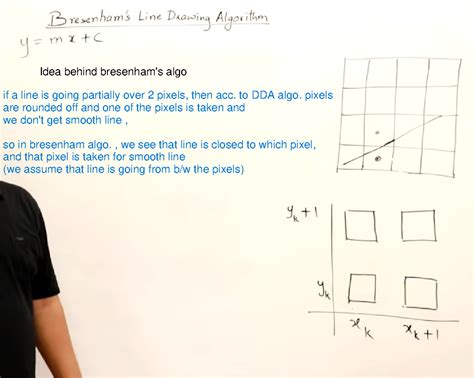 Bresenham's Line Drawing Algorithm
y = mx + c
Idea behind bresenham's algo
if a line is going partially over 2 pixels, then acc. to DDA algo. pixels
are rounded off and one of the pixels is taken and
we don't get smooth line ,
so in bresenham algo. , we see that line is closed to which pixel,
and that pixel is taken for smooth line
(we assume that line is going from b/w the pixels)
yk+1
yk
xk
xk+1